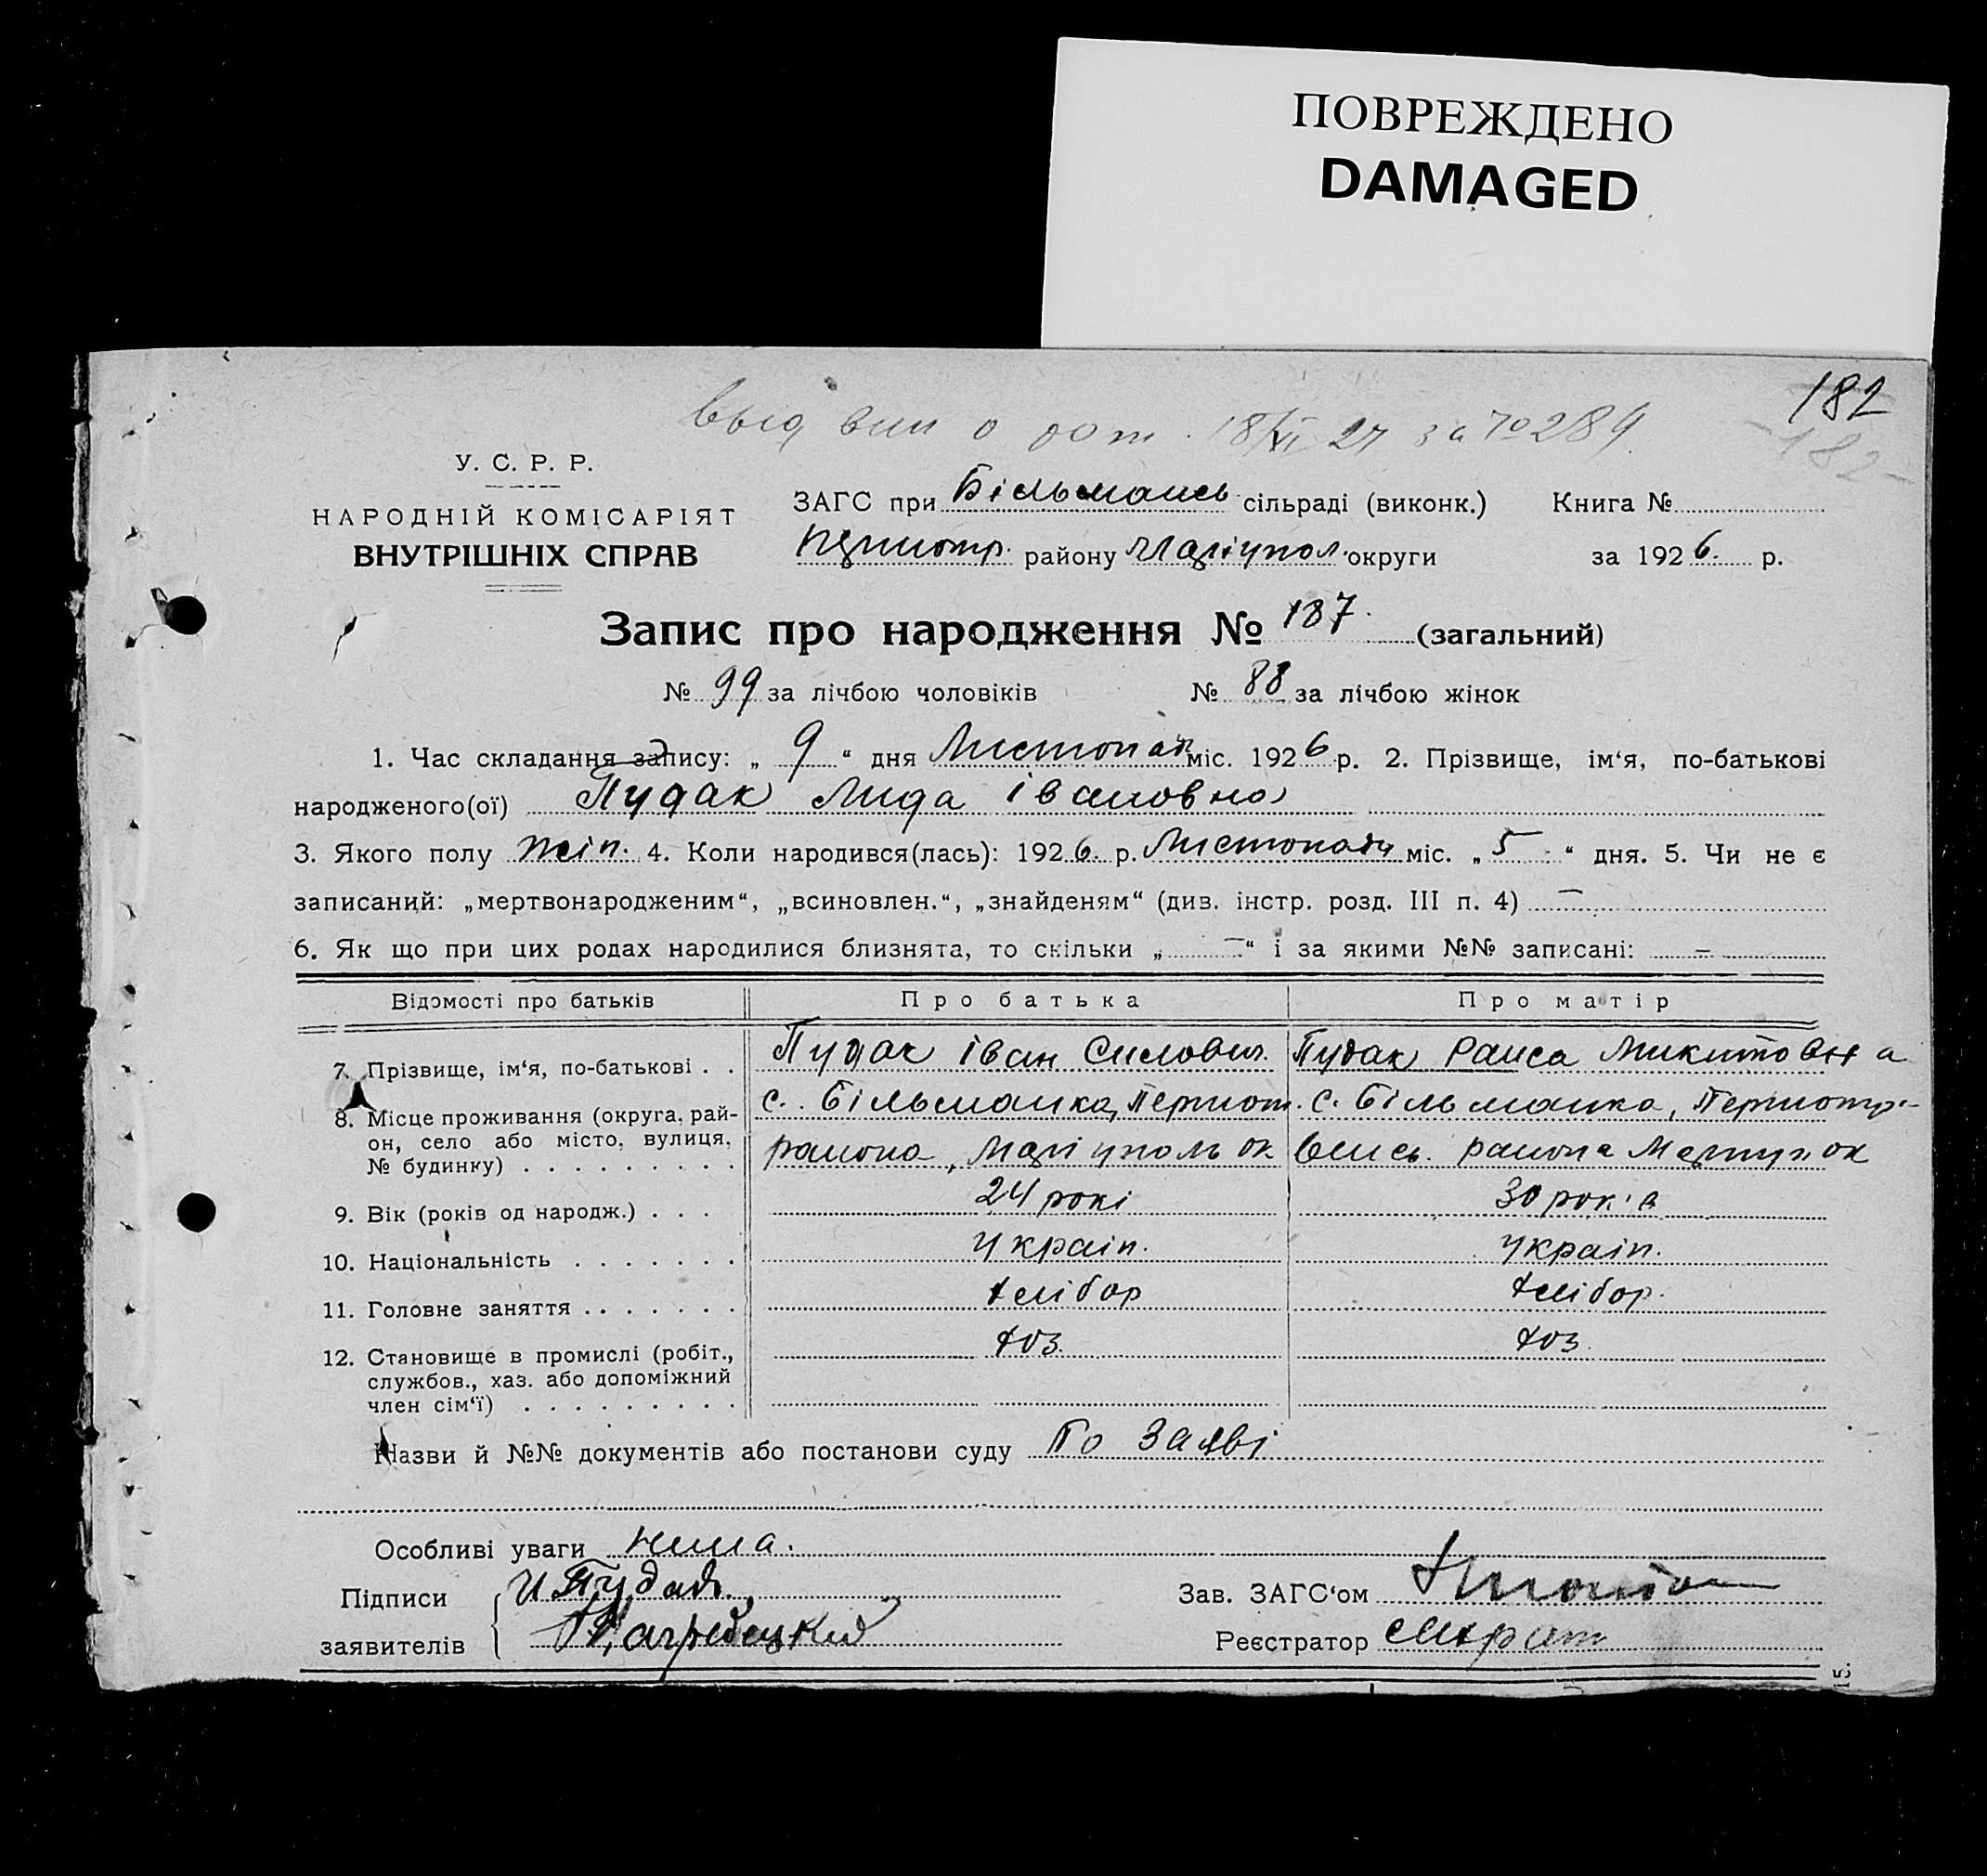 ПОВРЕЖДЕНО
DAMAGED
182
182
выд вип о 18/XI 27 за № 289
У. С. Р. Р.
НАРОДНІЙ КОМІСАРІЯТ
ВНУТРІШНІХ СПРАВ
ЗАГС при Більмансь сільраді (виконк.) Книга №
району Маріупол. округи за 1926. р.
Запис про народження № 187. (загальний)
№ 99 за лічбою чоловіків № 88 за лічбою жінок
1. Час складання запису: „ 9 “ дня Листопад міс. 1926 р. 2. Прізвище, ім‘я, по-батькові
народженого(ої) Пудак Лида Івановна
3. Якого полу жін. 4. Коли народився(лась): 1926. р. Листопада міс. „ 5 “ дня. 5. Чи не є
записаний: „мертвонародженим“, „всиновлен.“, „знайденям“ (див. інстр. розд. III п. 4) —
6. Як що при цих родах народилися близнята, то скільки „ — “ і за якими №№ записані: —
Відомості про батьків Про батька Про матір
7. Прізвище, ім‘я, по-батькові . . Пудак Іван Силович. Пудак Раиса Микитовна
8. Місце проживання (округа, рай-
он, село або місто, вулиця,
№ будинку) . . . . . . . . .
с. Більманка, Першот. района, Маріуполь ок
с. Більманка, Першотр- венсь. района Мариуп ок
9. Вік (років од народж.) . . . 24 рокі 30 рок а
10. Національність . . . . . . . україн. україн.
11. Головне заняття . . . . . . . хлібор хлібор.
12. Становище в промислі (робіт.,
службов., хаз. або допоміжний
член сім‘ї) . . . . . . . . .
хоз. хоз.
Назви й №№ документів або постанови суду По Заяві
Особливі уваги нима.
Підписи
заявителів
И Пудак
Зав. ЗАГС‘ом
Реєстратор
15.